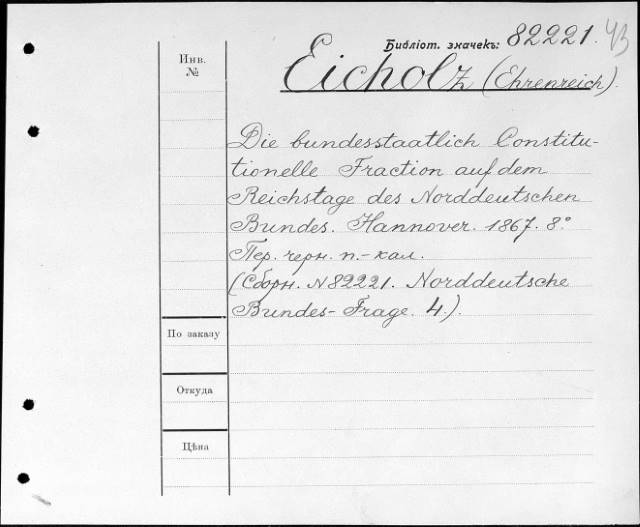 Библіот. значекъ: 82221. 43
Инв. №
Eicholz (Ehrenreich).
Die bundesstaatlich Constitu-
tionelle Fraction auf dem
Reichstage des Norddeutschen
Bundes. Hannover. 1867. 8°
Пер. черн. п.-кал.
(Сборн. № 82221. Norddeutsche
Bundes-Frage. 4.).
По заказу
Откуда
Цѣна